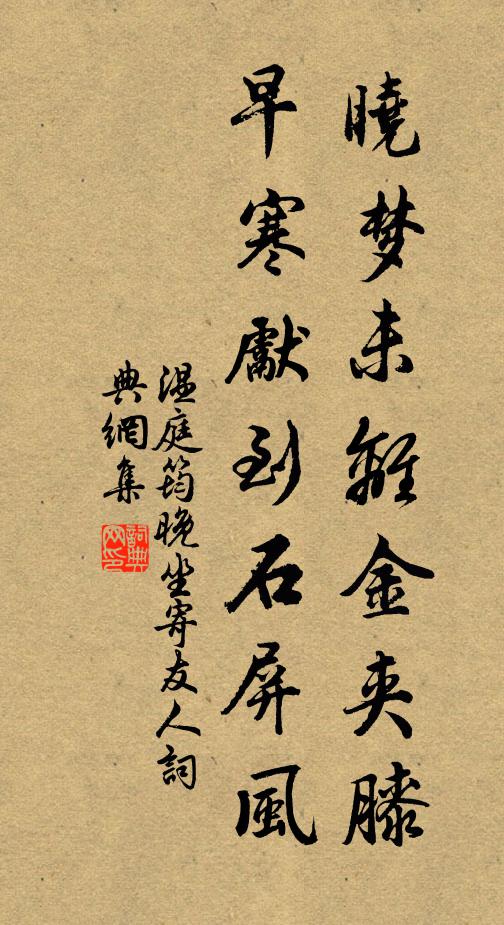 曉梦未離金夹膝
早寒獻到石屏風
温庭筠晚坐寄友人詞
典網集
詞典网印